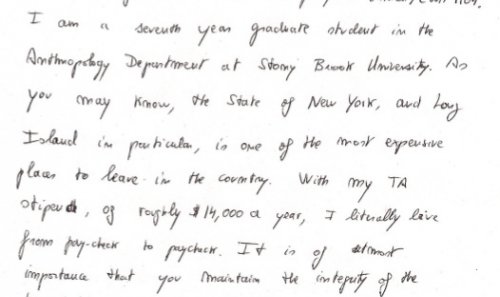 I am a seventh year graduate student in the
Anthropology Department at Stony Brook University. As
you may know, the State of New York, and Long
Island in particular, is one of the most expensive
places to leave in the country. With my TA
stipend, of roughly $14,000 a year, I literally live
from pay-check to paycheck. It is of utmost
importance that you maintain the integrity of the